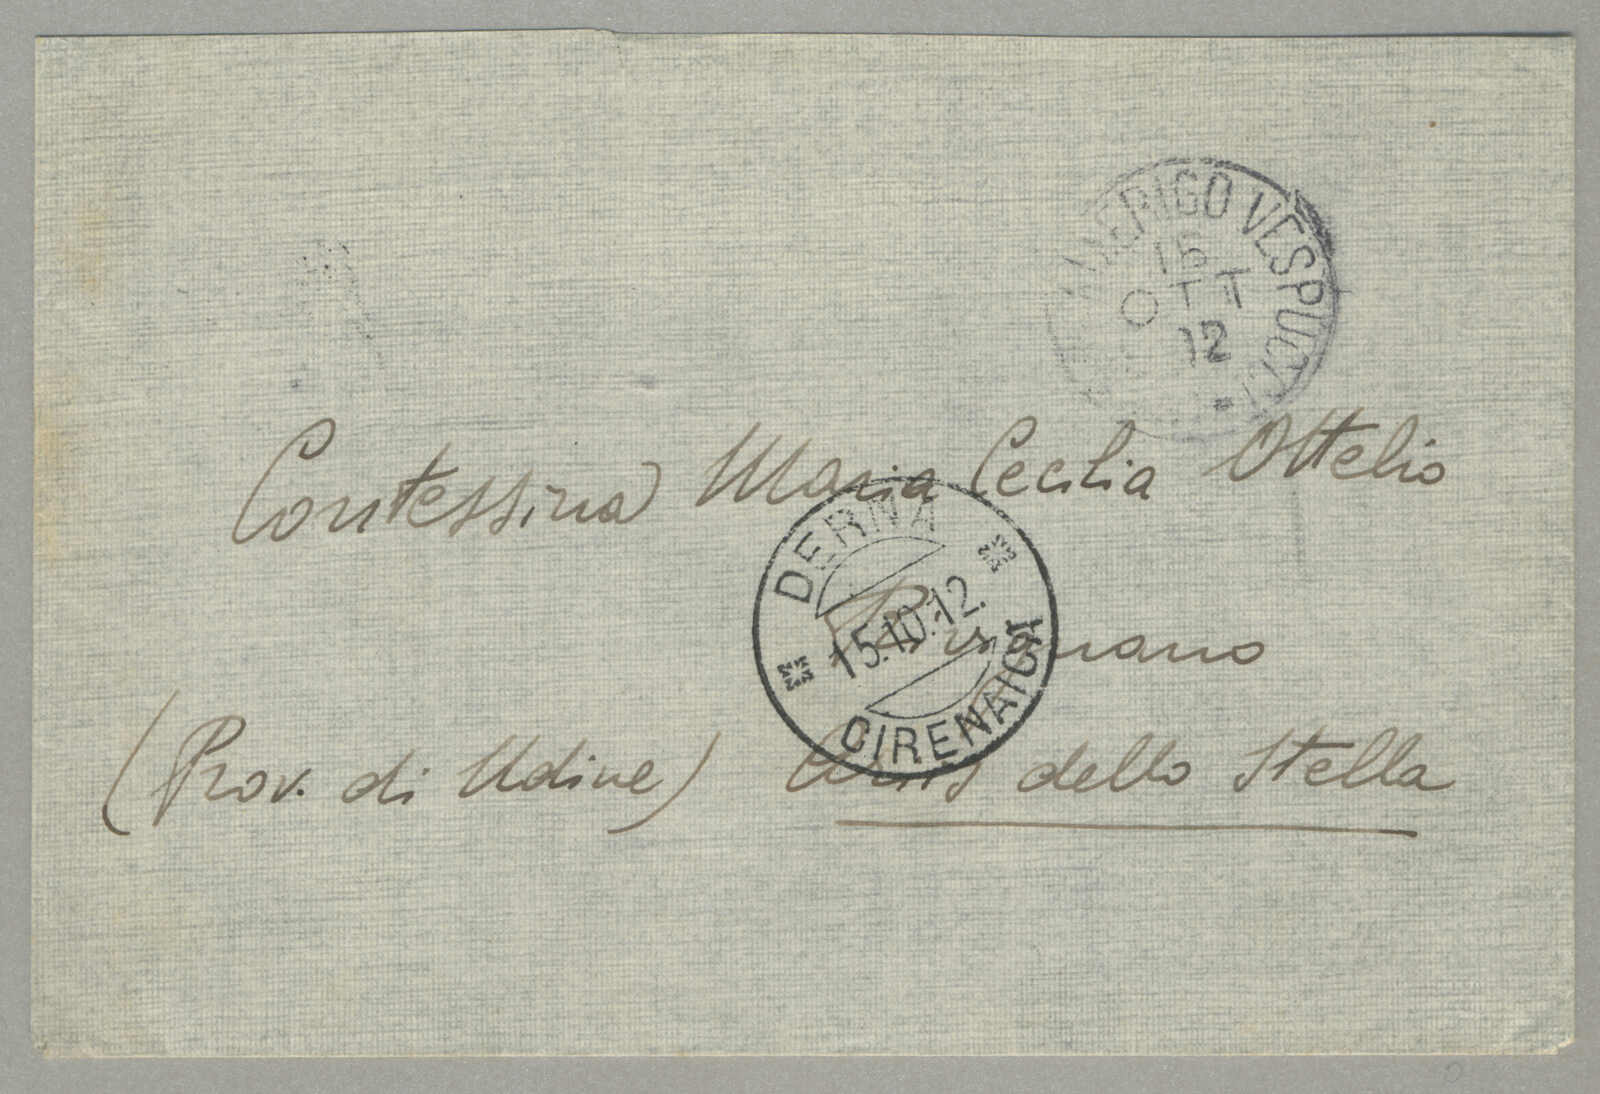 AMERIGO VESPUCCI
15
OTT
12
Contessina Maria Cecilia Ottelio
DERNA
15.10.12.
CIRENAICA
(Prov. di Udine) Ariis dello Stella